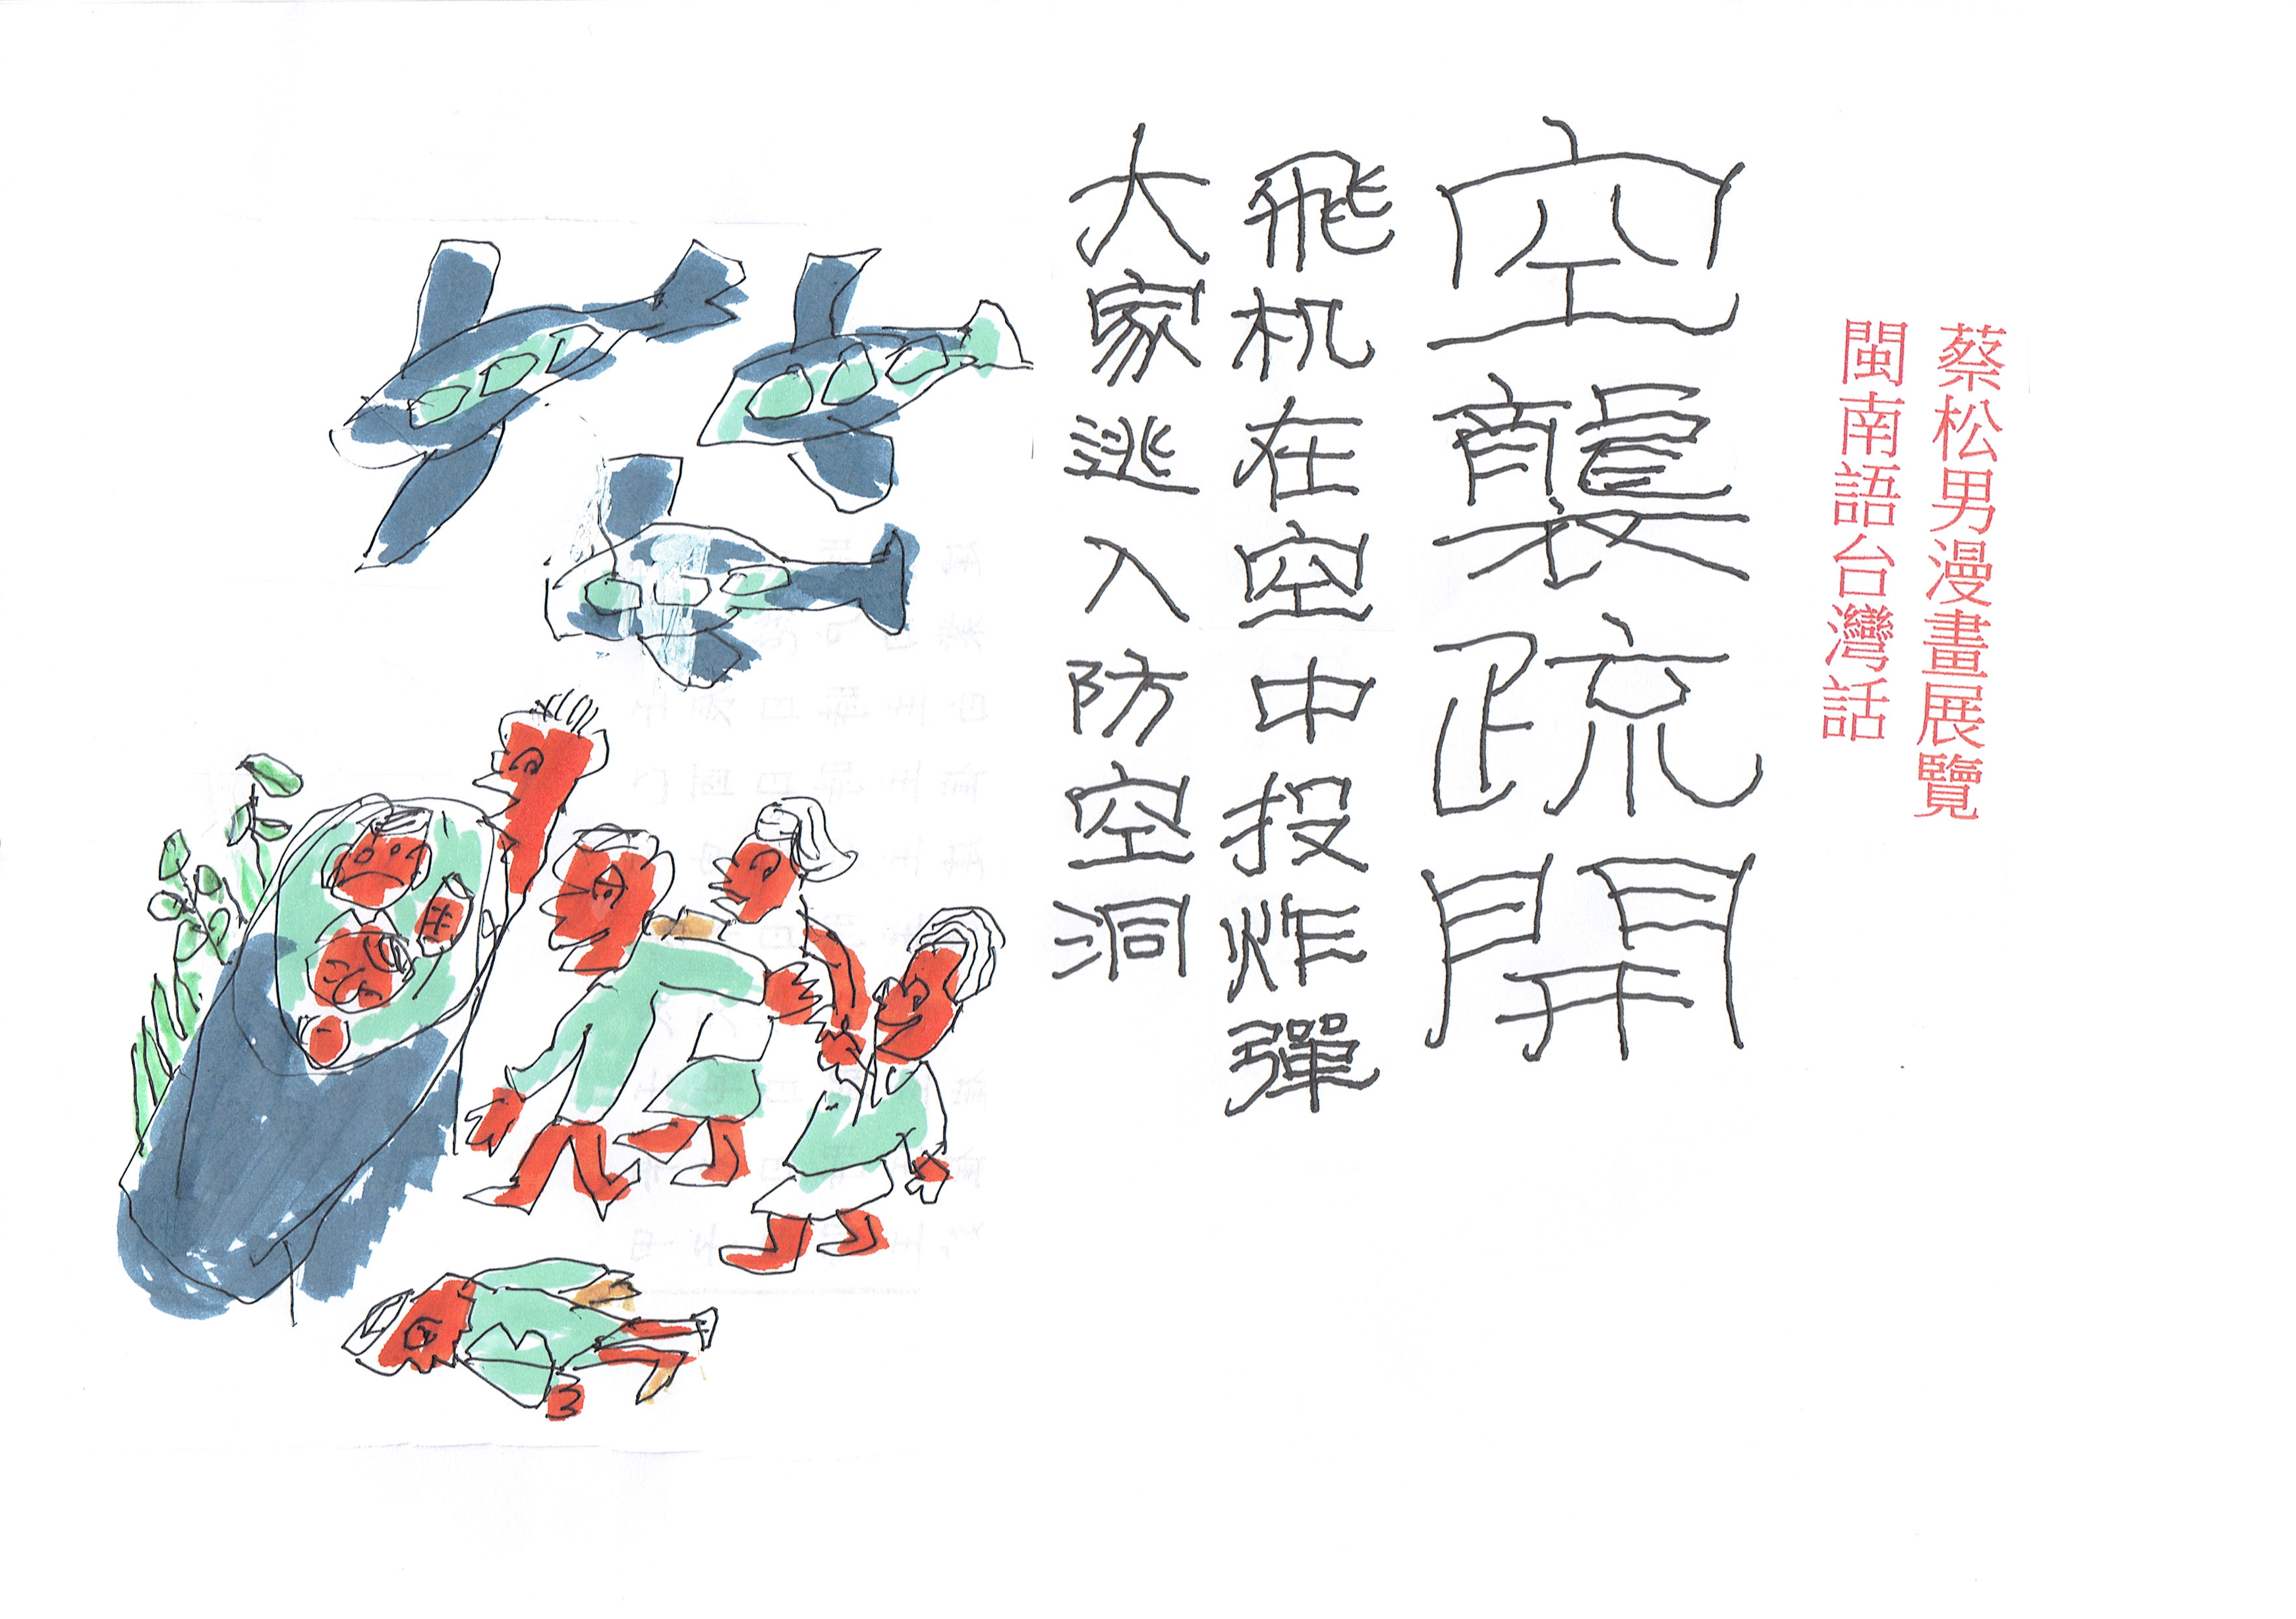 蔡松男漫畫展覽
閩南語台灣話
空襲疏開
飛机在空中投炸彈
大家逃入防空洞